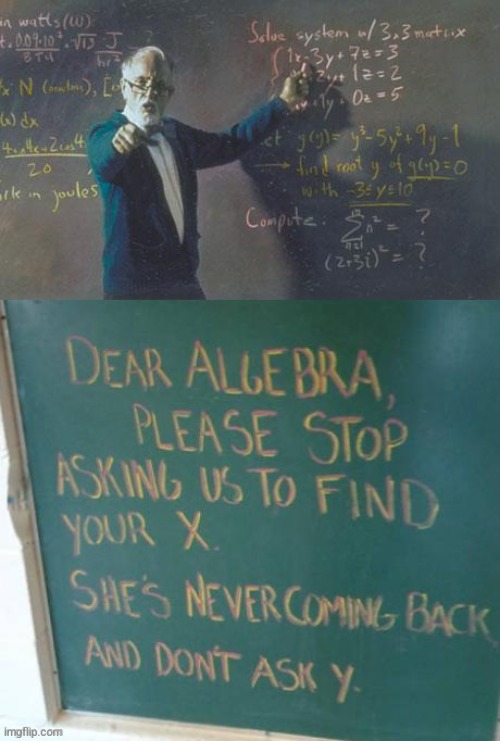 in watts (W)
BTU
N (newton),
20
in joules
Solve system w/ 3x3 matrix
1x-3y+7z=3
1z=2
0z=5
g(y)=y³-5y²+9y-1
→ find root y of g(y)=0
with -3≤y≤10
Compute: Σ n² = ?
n=1
(2+3i)² = ?
DEAR ALGEBRA,
PLEASE STOP
ASKING US TO FIND
YOUR X.
SHE'S NEVER COMING BACK
AND DON'T ASK Y.
imgflip.com